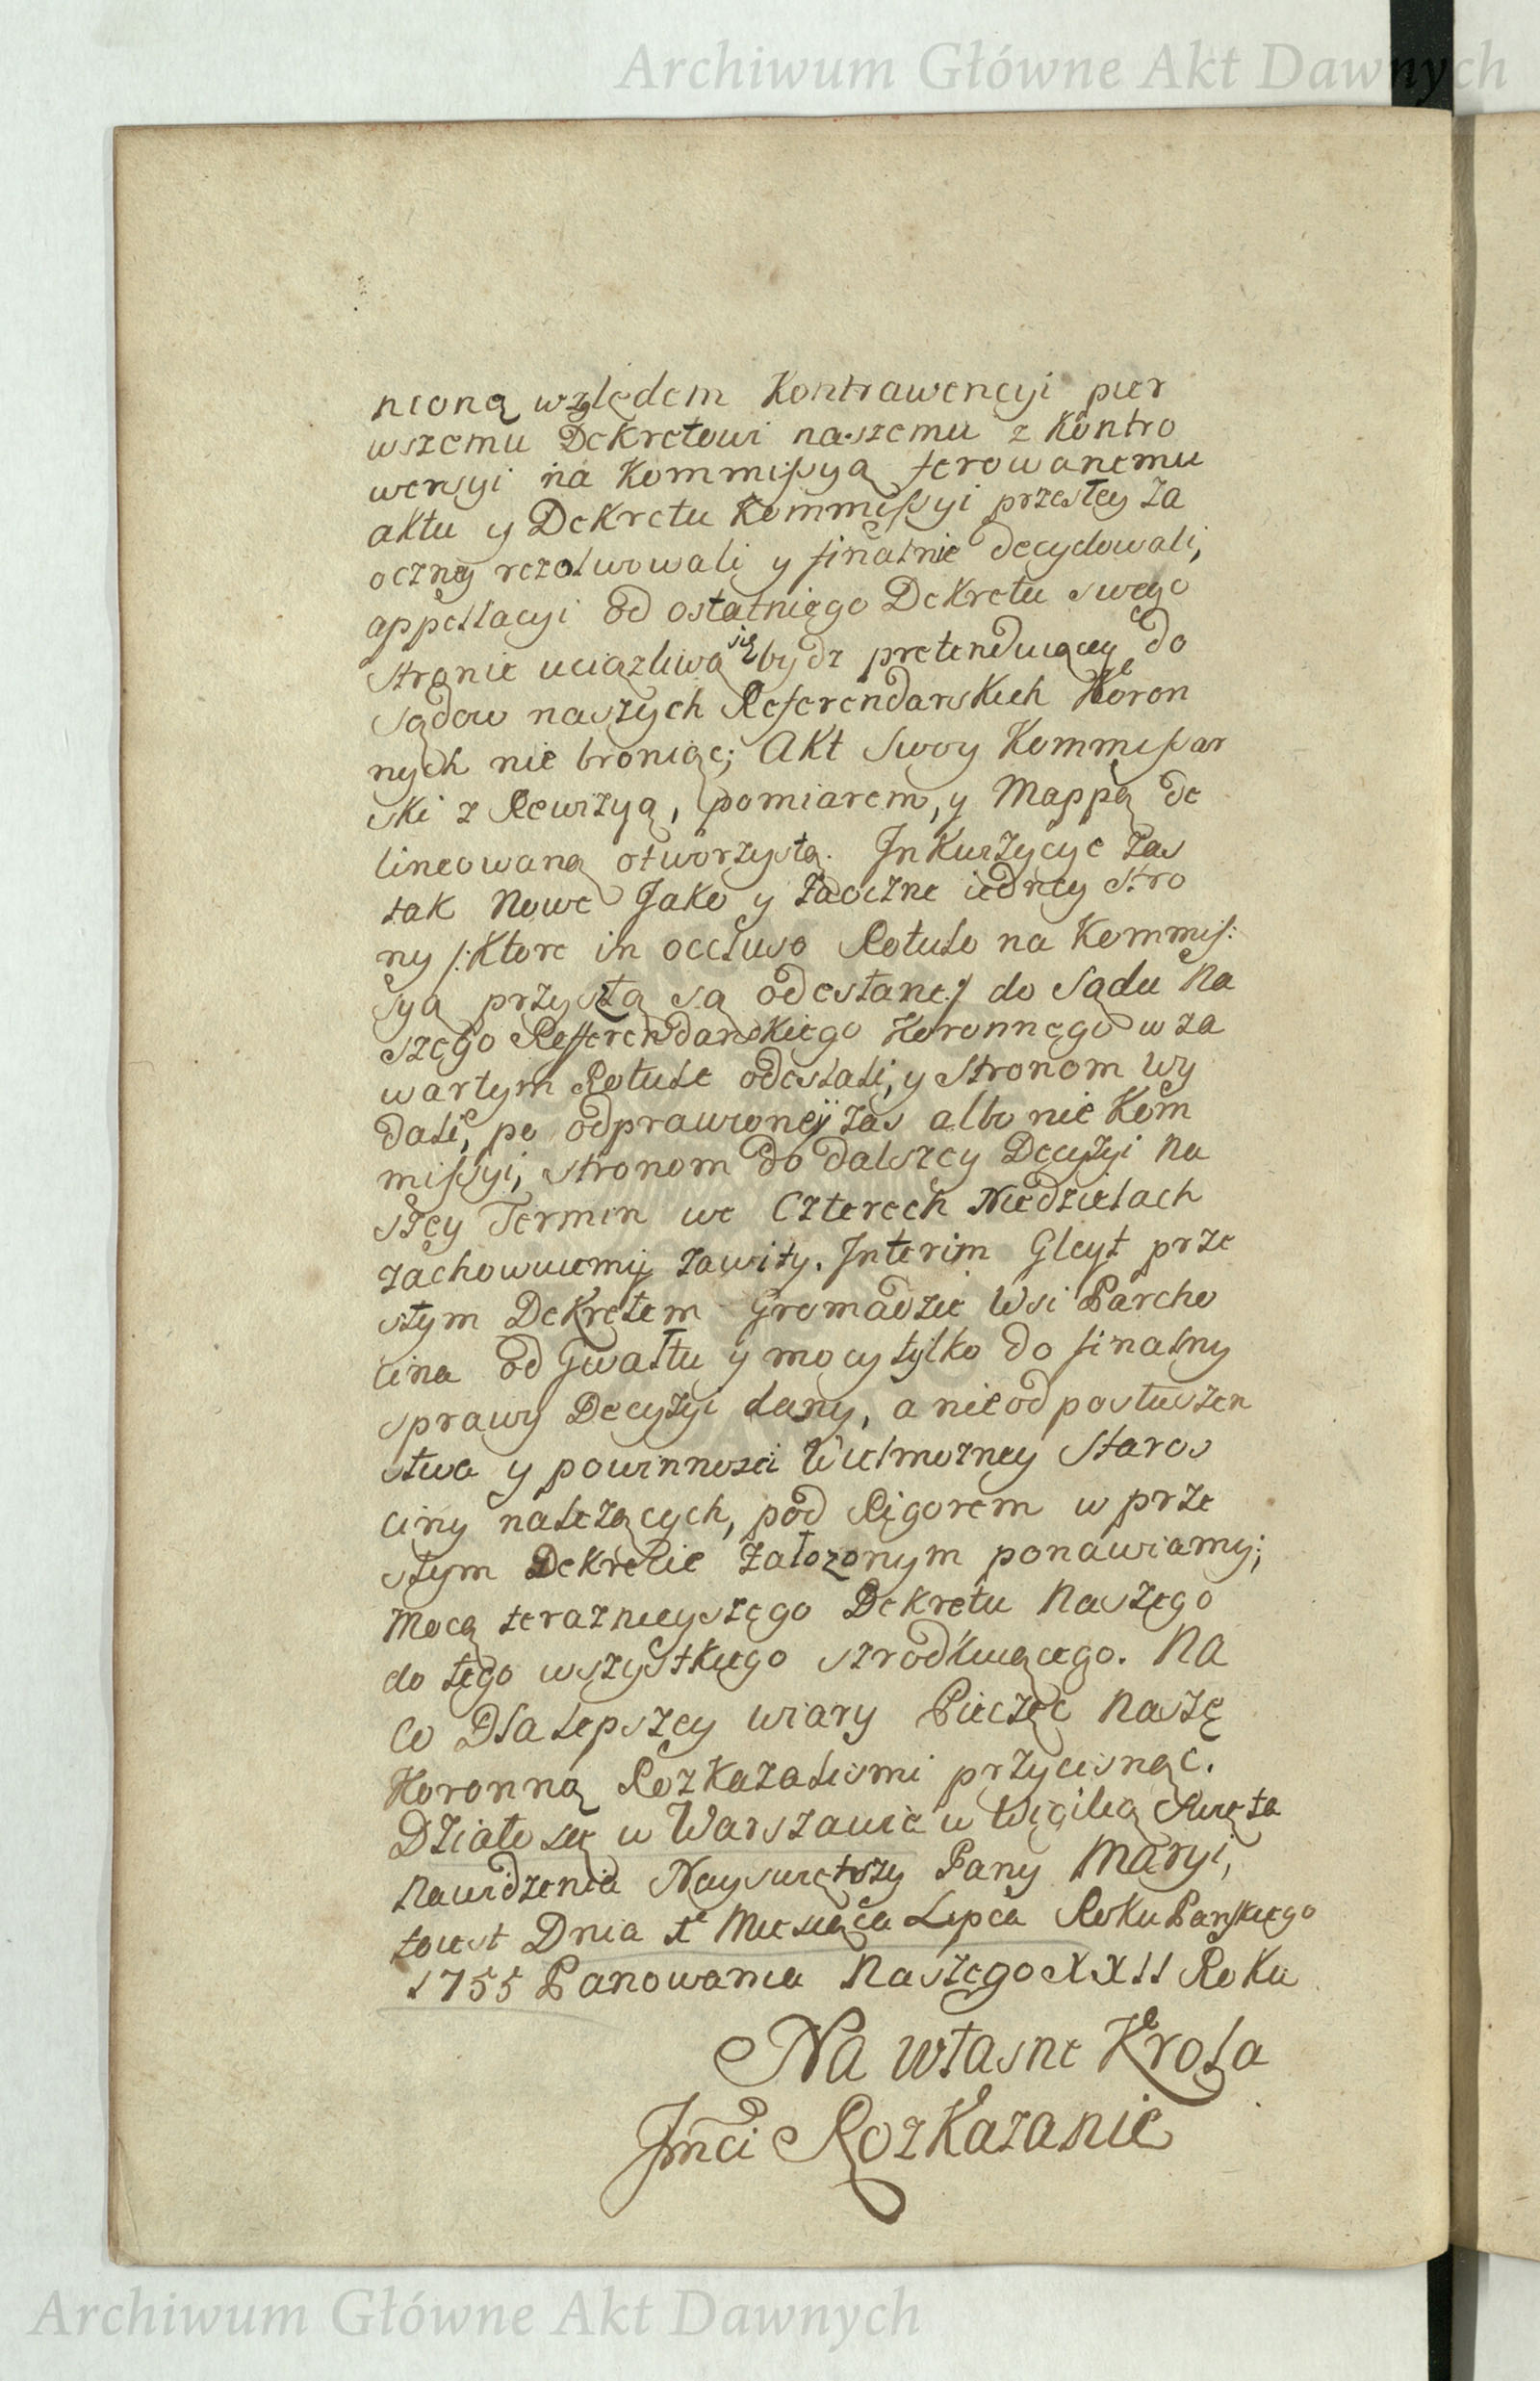 Archiwum Główne Akt Dawnych
nioną względem Kontrawencyi pier
wszemu Dekretowi naszemu z Kontro
wersyi na Kommissyą ferowanemu
aktu y Dekretu Kommissyi przeszłey za
oczney rezolwowali y finalnie decydowali,
appellacyi od ostatniego Dekretu swego
stronie uciązliwą się bydz pretenduiącey do
Sądow naszych Referendarskich Koron
nych nie broniąc; Akt Swoy Kommissar
ski z Rewizyą, pomiarem, y Mappą de
lineowaną otworzystą. Inkwizycye zas
tak Nowe Jako y zaoczne iedney stro
ny /:Ktore in occluso Rotulo na Kommis:
syą przyszłą są odesłane:/ do Sądu Na
szego Refferendarskiego Koronnego w za
wartym Rotule odesłali, y Stronom wy
dali, po odprawioney zas albo nie Kom
missyi, stronom do dalszey Decyzyi Na
szey Termin we Czterech Niedzielach
zachowuiemy zawity. Interim Gleyt prze
szłym Dekretem Gromadzie Wsi Parcho
cina od Gwałtu y mocy tylko do finalny
sprawy Decyzyi dany, a nie od posłuszen
stwa y powinnosci Wielmozney Staros
ciny nalezących, pod Rigorem w prze
szłym Dekrecie załozonym ponawiamy;
Mocą teraznieyszego Dekretu Naszego
do tego wszystkiego szrodkuiącego. Na
co Dla lepszey wiary Pieczęć Naszę
Koronną Rozkazalismi przycisnąć.
Działo się w Warszawie w Wigilią Swięta
Nawidzenia Nayswiętszy Panny Maryi,
toiest Dnia 1e Miesiąca Lipca Roku Panskiego
1755 Panowania Naszego XXII Roku
Na własne Krola
Jmci Rozkazanie
Archiwum Główne Akt Dawnych